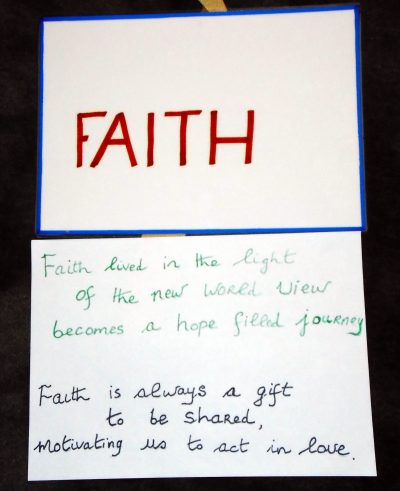 FAITH
Faith lived in the light
of the new World View
becomes a hope filled journey
Faith is always a gift
to be shared,
motivating us to act in love.